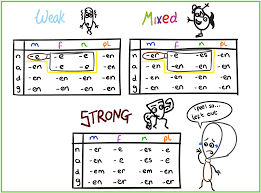 Weak
m f n pl
n -e -e -e -en
a -en -e -e -en
d -en -en -en -en
g -en -en -en -en
Mixed
m f n pl
n -er -e -es -en
a -en -e -es -en
d -en -en -en -en
g -en -en -en -en
STRONG
m f n pl
n -er -e -es -e
a -en -e -es -e
d -em -er -em -en
g -en -er -en -er
I feel so...
left out